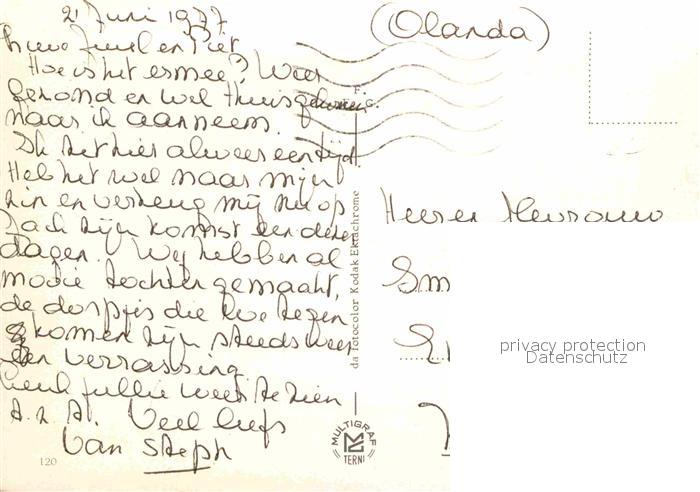 2 Juni 1977
(Olanda)
en Piet
Hoe is het ermee? Weer
gezond en wel thuisgekomen
naar ik aanneem.
Ik zit hier alweer een tijd
Heb het wel naar mijn
zin en verheug mij nu op
Jack zijn komst een dezer
dagen. Wij hebben al
mooie tochten gemaakt,
de dorpjes die we tegen
komen zijn steeds weer
een verrassing
jullie weer te zien
Veel liefs
van Steph
F. G.
da fotocolor Kodak Ektachrome
MULTIGRAF
TERNI
120
Heer en Mevrouw
Sm
privacy protection
Datenschutz